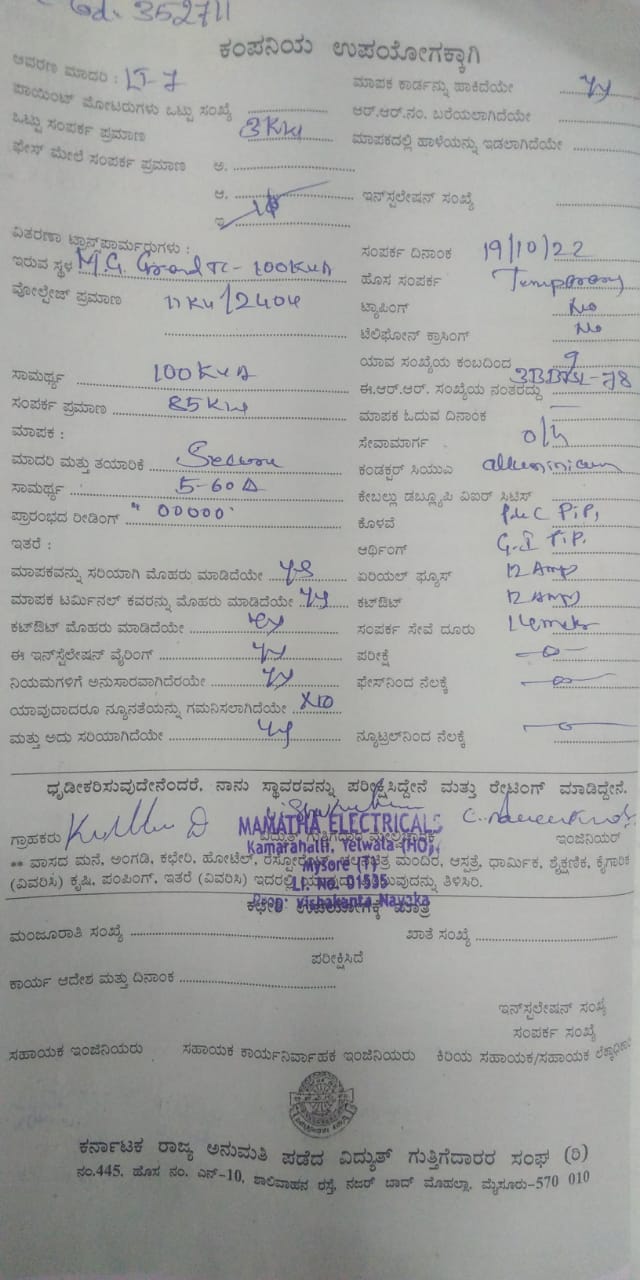 352711
ಕಂಪನಿಯ ಉಪಯೋಗಕ್ಕಾಗಿ
ಆವರಣ ಮಾದರಿ : LT-7
ಮಾಪಕ ಕಾರ್ಡನ್ನು ಹಾಕಿದೆಯೇ
ಪಾಯಿಂಟ್ ಮೋಟರುಗಳು ಒಟ್ಟು ಸಂಖ್ಯೆ
ಆರ್.ಆರ್.ನಂ. ಬರೆಯಲಾಗಿದೆಯೇ
ಒಟ್ಟು ಸಂಪರ್ಕ ಪ್ರಮಾಣ 3KW
ಮಾಪಕದಲ್ಲಿ ಹಾಳೆಯನ್ನು ಇಡಲಾಗಿದೆಯೇ
ಫೇಸ್ ಮೇಲೆ ಸಂಪರ್ಕ ಪ್ರಮಾಣ ಅ.
ಆ.
ಇನ್‌ಸ್ಟಲೇಷನ್ ಸಂಖ್ಯೆ
ಇ
ವಿತರಣಾ ಟ್ರಾನ್ಸ್‌ಫಾರ್ಮರುಗಳು :
ಸಂಪರ್ಕ ದಿನಾಂಕ 19/10/22
ಇರುವ ಸ್ಥಳ M.G. Grand TC - 100KVA
ಹೊಸ ಸಂಪರ್ಕ Temporary
ವೋಲ್ಟೇಜ್ ಪ್ರಮಾಣ 11KV/240V
ಟ್ಯಾಪಿಂಗ್ No
ಟೆಲಿಫೋನ್ ಕ್ರಾಸಿಂಗ್ No
ಯಾವ ಸಂಖ್ಯೆಯ ಕಂಬದಿಂದ 9
ಸಾಮರ್ಥ್ಯ 100KVA
ಈ.ಆರ್.ಆರ್. ಸಂಖ್ಯೆಯ ನಂತರದ್ದು
ಸಂಪರ್ಕ ಪ್ರಮಾಣ 85KW
ಮಾಪಕ ಓದುವ ದಿನಾಂಕ —
ಮಾಪಕ :
ಸೇವಾಮಾರ್ಗ o/h
ಮಾದರಿ ಮತ್ತು ತಯಾರಿಕೆ Secure
ಕಂಡಕ್ಟರ್ ಸಿಯುಎ
ಸಾಮರ್ಥ್ಯ 5-60A
ಕೇಬಲ್ಲು ಡಬ್ಲ್ಯೂಪಿ ವಿಐರ್ ಸಿಟಿಸ್
ಪ್ರಾರಂಭದ ರೀಡಿಂಗ್ "00000"
ಕೊಳವೆ
ಇತರೆ :
ಆರ್ಥಿಂಗ್ G.I
ಮಾಪಕವನ್ನು ಸರಿಯಾಗಿ ಮೊಹರು ಮಾಡಿದೆಯೇ
ಏರಿಯಲ್ ಫ್ಯೂಸ್ 12 Amp
ಮಾಪಕ ಟರ್ಮಿನಲ್ ಕವರನ್ನು ಮೊಹರು ಮಾಡಿದೆಯೇ
ಕಟ್‌ಔಟ್ 12 Amp
ಕಟ್‌ಔಟ್ ಮೊಹರು ಮಾಡಿದೆಯೇ
ಸಂಪರ್ಕ ಸೇವೆ ದೂರು
ಈ ಇನ್‌ಸ್ಟೆಲೇಷನ್ ವೈರಿಂಗ್
ಪರೀಕ್ಷೆ
ನಿಯಮಗಳಿಗೆ ಅನುಸಾರವಾಗಿದೆರಯೇ
ಫೇಸ್‌ನಿಂದ ನೆಲಕ್ಕೆ
ಯಾವುದಾದರೂ ನ್ಯೂನತೆಯನ್ನು ಗಮನಿಸಲಾಗಿದೆಯೇ
ಮತ್ತು ಅದು ಸರಿಯಾಗಿದೆಯೇ
ನ್ಯೂಟ್ರಲ್‌ನಿಂದ ನೆಲಕ್ಕೆ
ಧೃಡೀಕರಿಸುವುದೇನೆಂದರೆ, ನಾನು ಸ್ಥಾವರವನ್ನು ಪರೀಕ್ಷಿಸಿದ್ದೇನೆ ಮತ್ತು ರೇಟಿಂಗ್ ಮಾಡಿದ್ದೇನೆ.
MAMATHA ELECTRICALS
ಗ್ರಾಹಕರು
ಇಂಜಿನಿಯರ್
Kamarahalli, Yelwala (HO),
** ವಾಸದ ಮನೆ, ಅಂಗಡಿ, ಕಛೇರಿ, ಹೋಟೆಲ್, ಮಂದಿರ, ಆಸ್ಪತ್ರೆ, ಧಾರ್ಮಿಕ, ಶೈಕ್ಷಣಿಕ, ಕೈಗಾರಿಕ
Mysore (T)
(ವಿವರಿಸಿ) ಕೃಷಿ, ಪಂಪಿಂಗ್, ಇತರೆ (ವಿವರಿಸಿ) ಇದರಲ್ಲಿ ತಿಳಿಸಿರಿ.
LT No. 01535
Prop: Vishakanta Nayaka
ಕಛೇರಿ ಉಪಯೋಗಕ್ಕೆ ಮಾತ್ರ
ಮಂಜೂರಾತಿ ಸಂಖ್ಯೆ
ಖಾತೆ ಸಂಖ್ಯೆ
ಪರೀಕ್ಷಿಸಿದೆ
ಕಾರ್ಯ ಆದೇಶ ಮತ್ತು ದಿನಾಂಕ
ಇನ್‌ಸ್ಟಲೇಶನ್ ಸಂಖ್ಯೆ
ಸಂಪರ್ಕ ಸಂಖ್ಯೆ
ಸಹಾಯಕ ಇಂಜಿನಿಯರು ಸಹಾಯಕ ಕಾರ್ಯನಿರ್ವಾಹಕ ಇಂಜಿನಿಯರು ಕಿರಿಯ ಸಹಾಯಕ/ಸಹಾಯಕ ಲೆಕ್ಕಾಧಿಕಾರಿ
ಕರ್ನಾಟಕ ರಾಜ್ಯ ಅನುಮತಿ ಪಡೆದ ವಿದ್ಯುತ್ ಗುತ್ತಿಗೆದಾರರ ಸಂಘ (ರಿ)
ನಂ.445, ಹೊಸ ನಂ. ಎನ್-10, ಶಾಲಿವಾಹನ ರಸ್ತೆ, ನಜರ್ ಬಾದ್ ಮೊಹಲ್ಲಾ, ಮೈಸೂರು-570 010